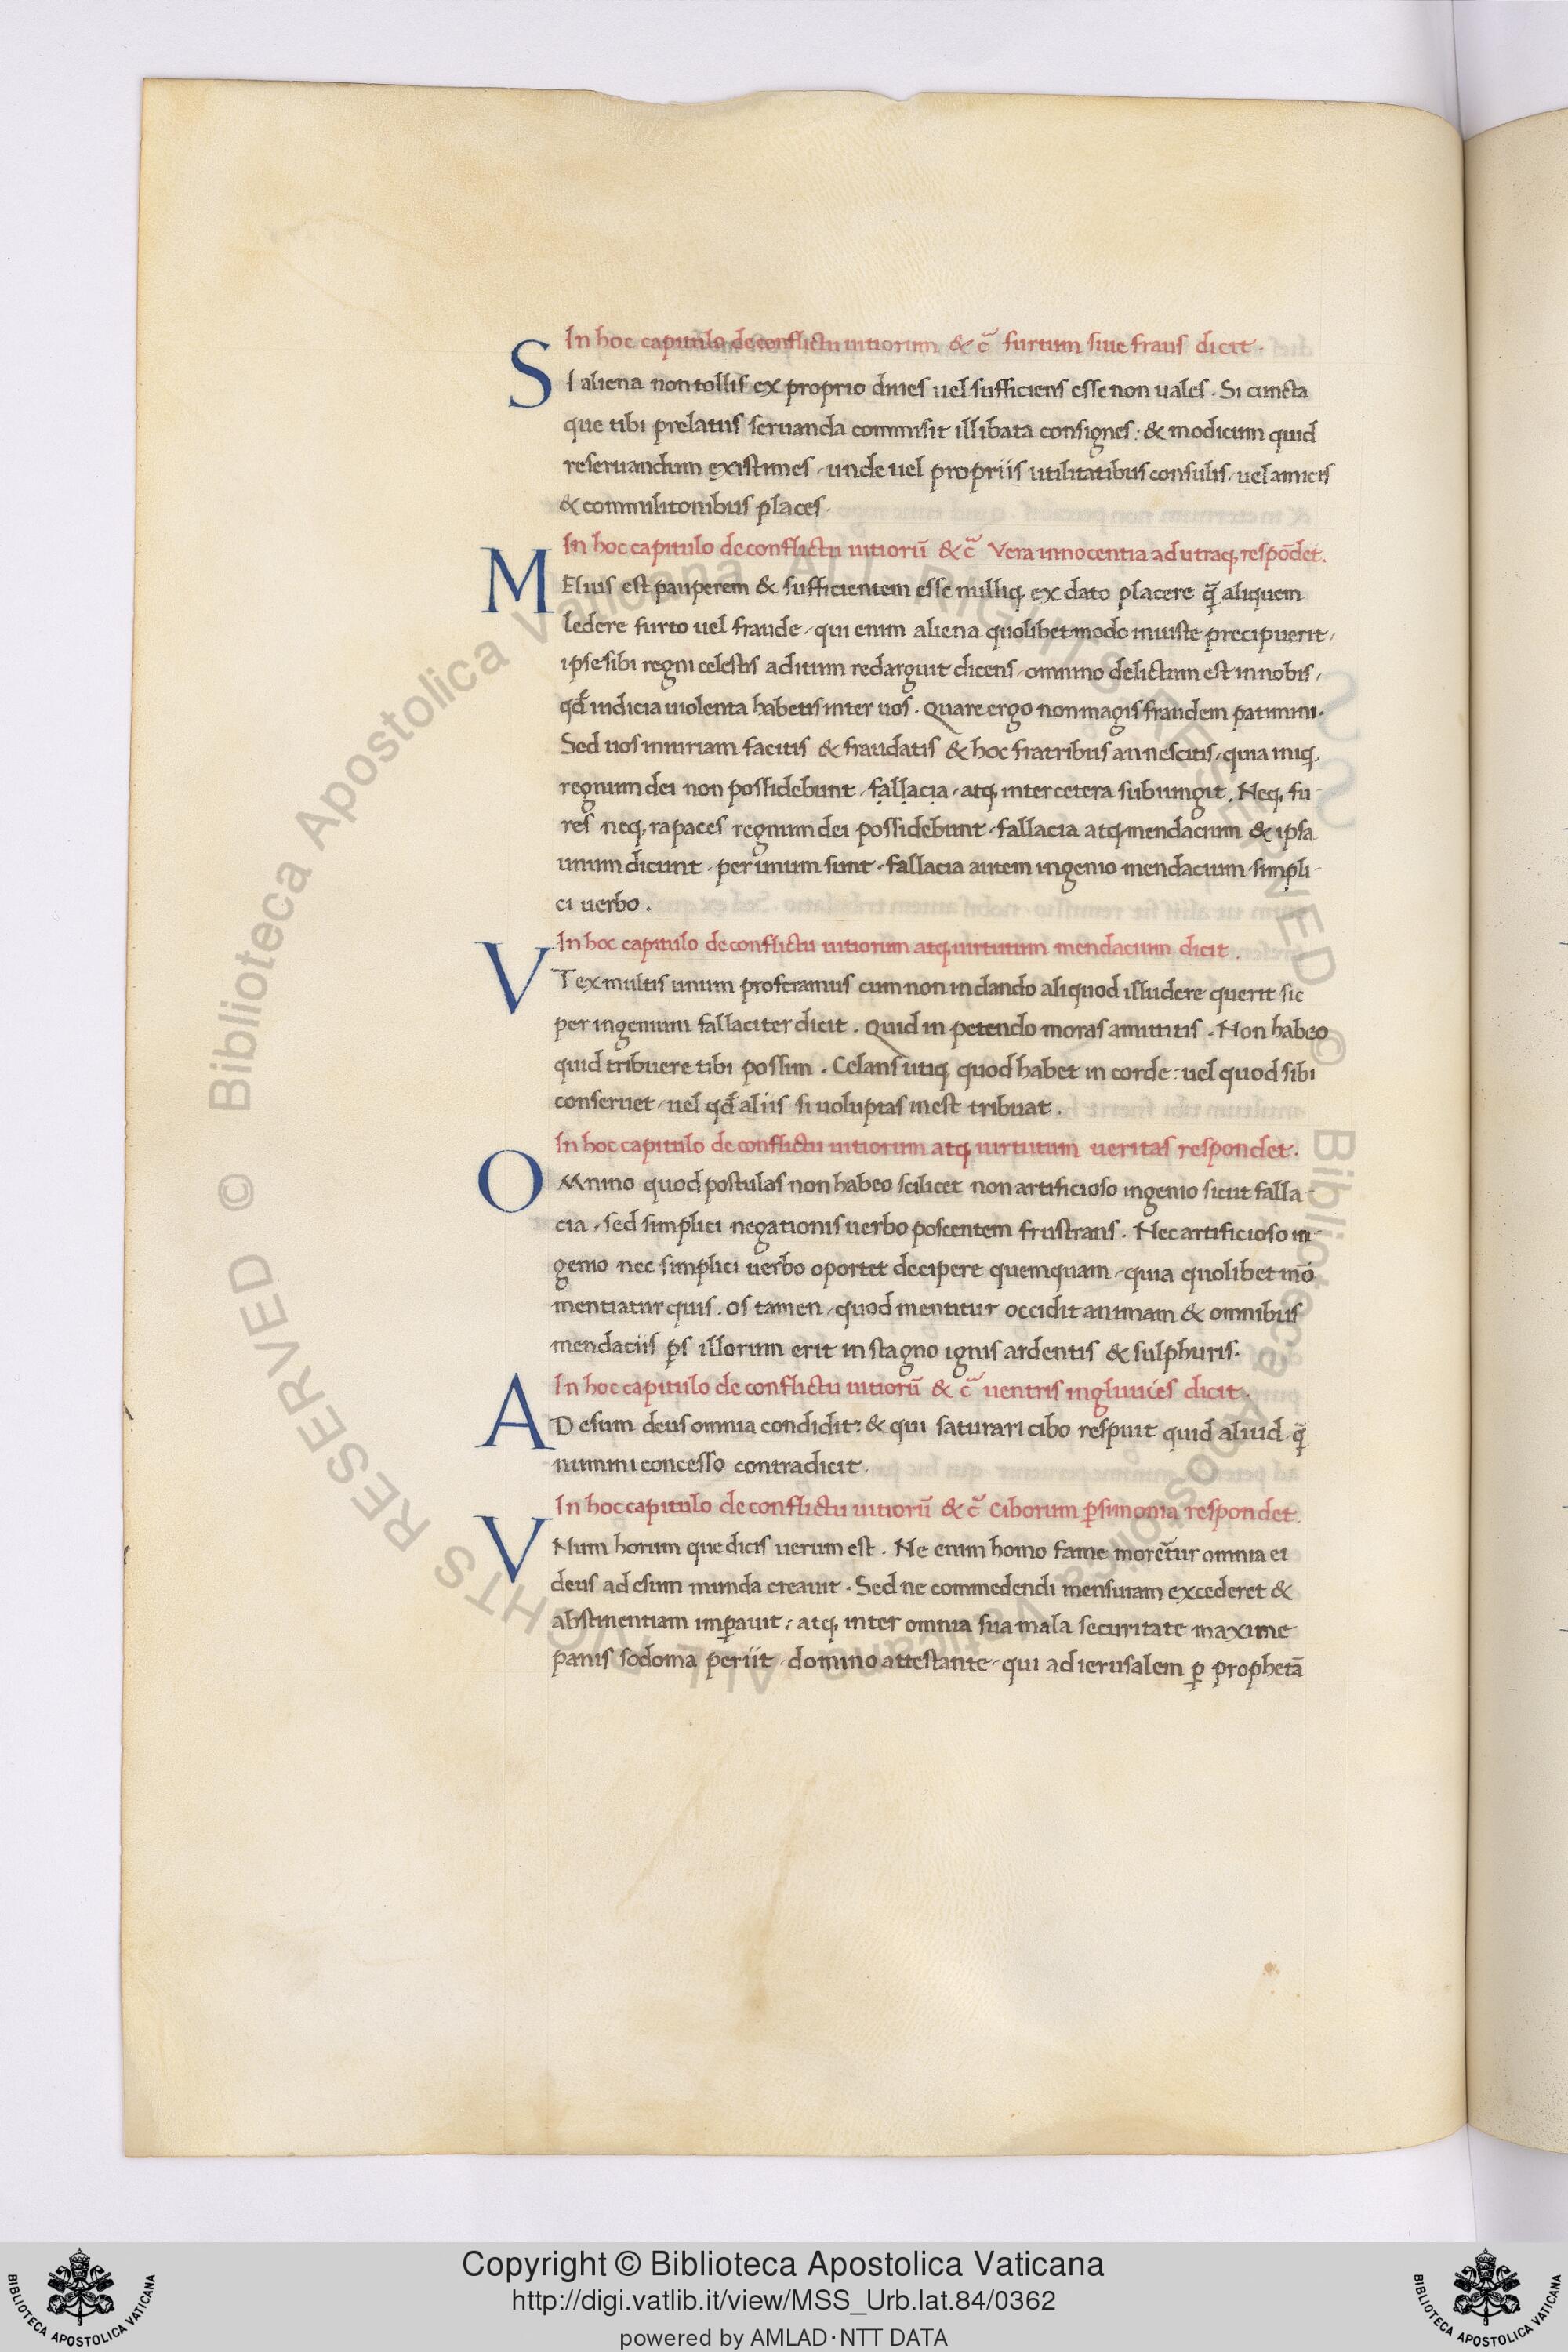 In hoc capitulo de conflictu uitiorum & c̃ furtum siue fraus dicit ·
SI aliena non tollis ex proprio diues uel sufficiens esse non uales . Si cuncta
que tibi prelatus seruanda commisit illibata consignes : & modicum quid
reseruandum existimes , unde uel propriis utilitatibus consulis , uel amicis
& commilitonibus places .
In hoc capitulo de conflictu uitiorū & c̃ Vera innocentia ad utraq; respōdet .
MElius est pauperem & sufficientem esse nulliq; ex dato placere q̃ aliquem
ledere furto uel fraude , qui enim aliena quolibet modo iniuste precipuerit ,
ipse sibi regni celestis aditum redarguit dicens , omnino delictum est in nobis ,
qd̄ iudicia uiolenta habetis inter uos . Quare ergo non magis fraudem patimini .
Sed uos iniuriam facitis & fraudatis & hoc fratribus an nescitis , quia iniq;
regnum dei non possidebunt , fallacia , atq; inter cetera subiungit . Neq; fu
res neq; rapaces regnum dei possidebunt , fallacia atq; mendacium & ipsa
unum dicunt , per unum sunt , fallacia autem ingenio mendacium simpli
ci uerbo .
In hoc capitulo de conflictu uitiorum atq; uirtutum mendacium dicit .
VT ex multis unum proferamus cum non in dando aliquod illudere querit sic
per ingenium fallaciter dicit . Quid in petendo moras amittitis . Non habeo
quid tribuere tibi possim . Celans utiq; quod habet in corde : uel quod sibi
conseruet , uel qd̄ aliis si uoluptas inest tribuat .
In hoc capitulo de conflictu uitiorum atq; uirtutum ueritas respondet .
OMnino quod postulas non habeo scilicet non artificioso ingenio sicut falla
cia , sed simplici negationis uerbo poscentem frustrans . Nec artificioso in
genio nec simplici uerbo oportet decipere quemquam , quia quolibet mō
mentiatur quis . os tamen , quod mentitur occidit animam & omnibus
mendaciis ps̄ illorum erit in stagno ignis ardentis & sulphuris .
In hoc capitulo de conflictu uitiorū & c̃ uentris ingluuies dicit .
AD esum deus omnia condidit : & qui saturari cibo respuit quid aliud q̃
numini concesso contradicit .
In hoc capitulo de conflictu uitiorū & c̃ Ciborum ꝑsimonia respondet .
VNum horum que dicis uerum est . Ne enim homo fame moret̄ur omnia ei
deus ad esum munda creauit . Sed ne commedendi mensuram excederet &
abstinentiam imꝑauit : atq; inter omnia sua mala securitate maxime
panis sodoma periit , domino attestante , qui ad ierusalem ꝑ prophetā
© Biblioteca Apostolica Vaticana ALL RIGHTS RESERVED
© Biblioteca Apostolica Vaticana ALL RIGHTS RESERVED
Copyright © Biblioteca Apostolica Vaticana
http://digi.vatlib.it/view/MSS_Urb.lat.84/0362
powered by AMLAD·NTT DATA
BIBLIOTECA APOSTOLICA VATICANA
BIBLIOTECA APOSTOLICA VATICANA